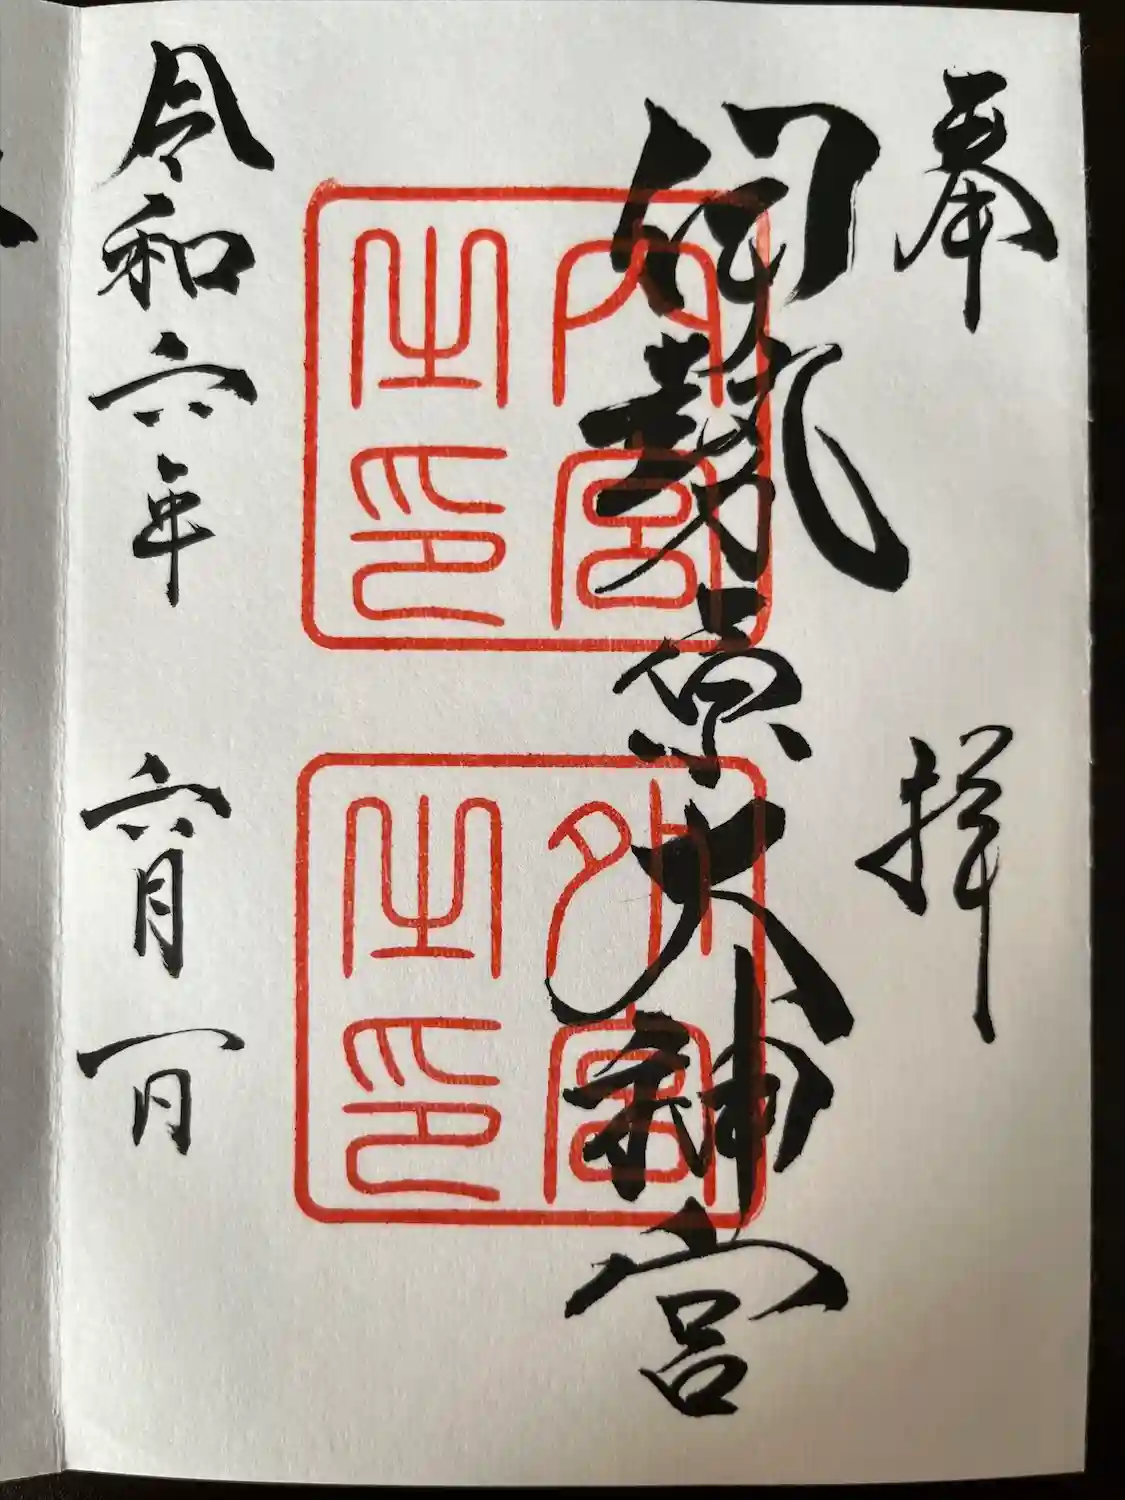 奉拝
伊勢原大神宮
内宮
之印
外宮
之印
令和六年六月一日